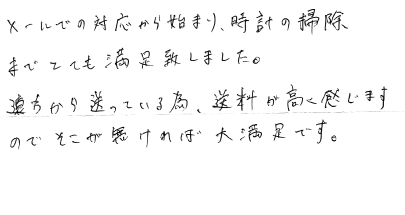 メールでの対応から始まり、時計の掃除
までとても満足致しました。
遠方から送っている為、送料が高く感じます
のでそこが無ければ大満足です。